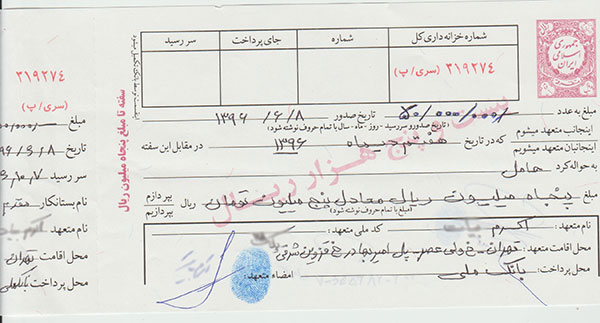 شماره خزانه داری کل
شماره
جای پرداخت
سر رسید
۳۱۹۲۷۴
(سری/ب)
جمهوری
اسلامی
ایران
سفته تا مبلغ پنجاه میلیون ریال
بیست و پنج هزار ریال
مبلغ به عدد ۵۰/۰۰۰/۰۰۰/ تاریخ صدور ۱۳۹۶/۶/۸
(تاریخ صدور و سررسید - روز - ماه - سال با تمام حروف نوشته شود)
اینجانب متعهد میشوم
اینجانبان متعهد میشویم
که در تاریخ هفتم دیماه ۱۳۹۶ در مقابل این سفته
به حواله کرد حامل
مبلغ پنجاه میلیون ریال معادل پنج میلیون تومان ریال
بپردازم
بپردازیم
(مبلغ با تمام حروف نوشته شود)
نام متعهد: اکرم
کد ملی متعهد:
محل اقامت متعهد: تهران - خ ولی عصر - پل امیربهادر خ قزوین شرقی
محل پرداخت: بانک ملی
امضاء متعهد:
۳۱۹۲۷۴
(سری/ب)
مبلغ
تاریخ
سر رسید
نام بستانکار
نام متعهد
محل اقامت تهران
محل پرداخت بانک ملی